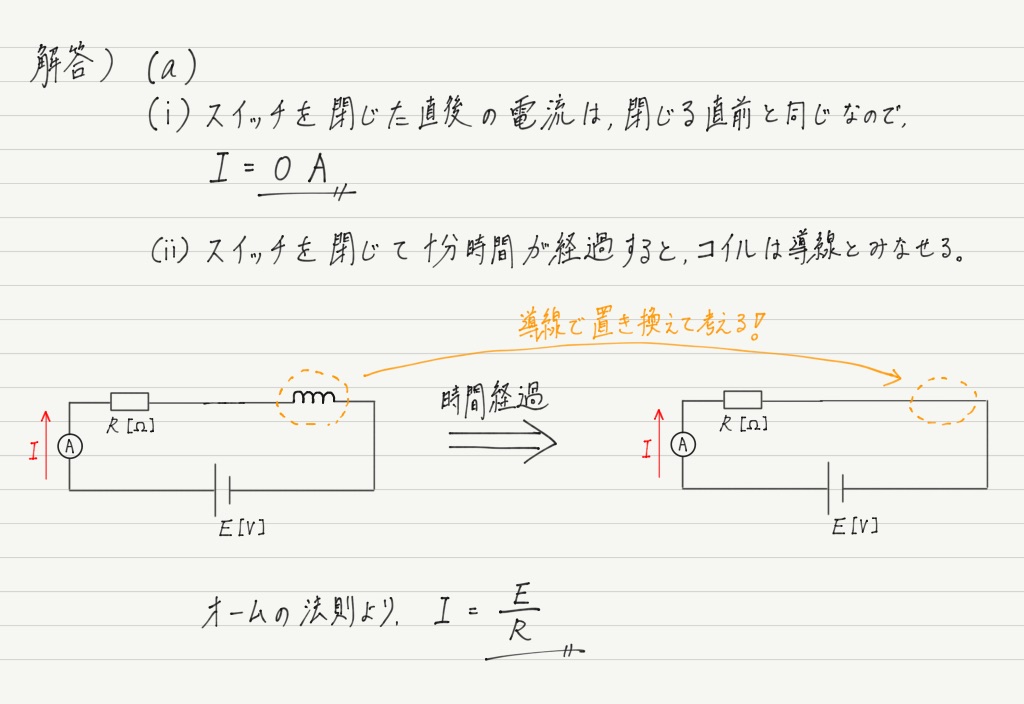 解答) (a)
(i) スイッチを閉じた直後の電流は, 閉じる直前と同じなので,
I = 0 A
(ii) スイッチを閉じて十分時間が経過すると, コイルは導線とみなせる。
導線で置き換えて考える!
時間経過
R [Ω]
I
A
E [V]
R [Ω]
I
A
E [V]
オームの法則より, I = E/R